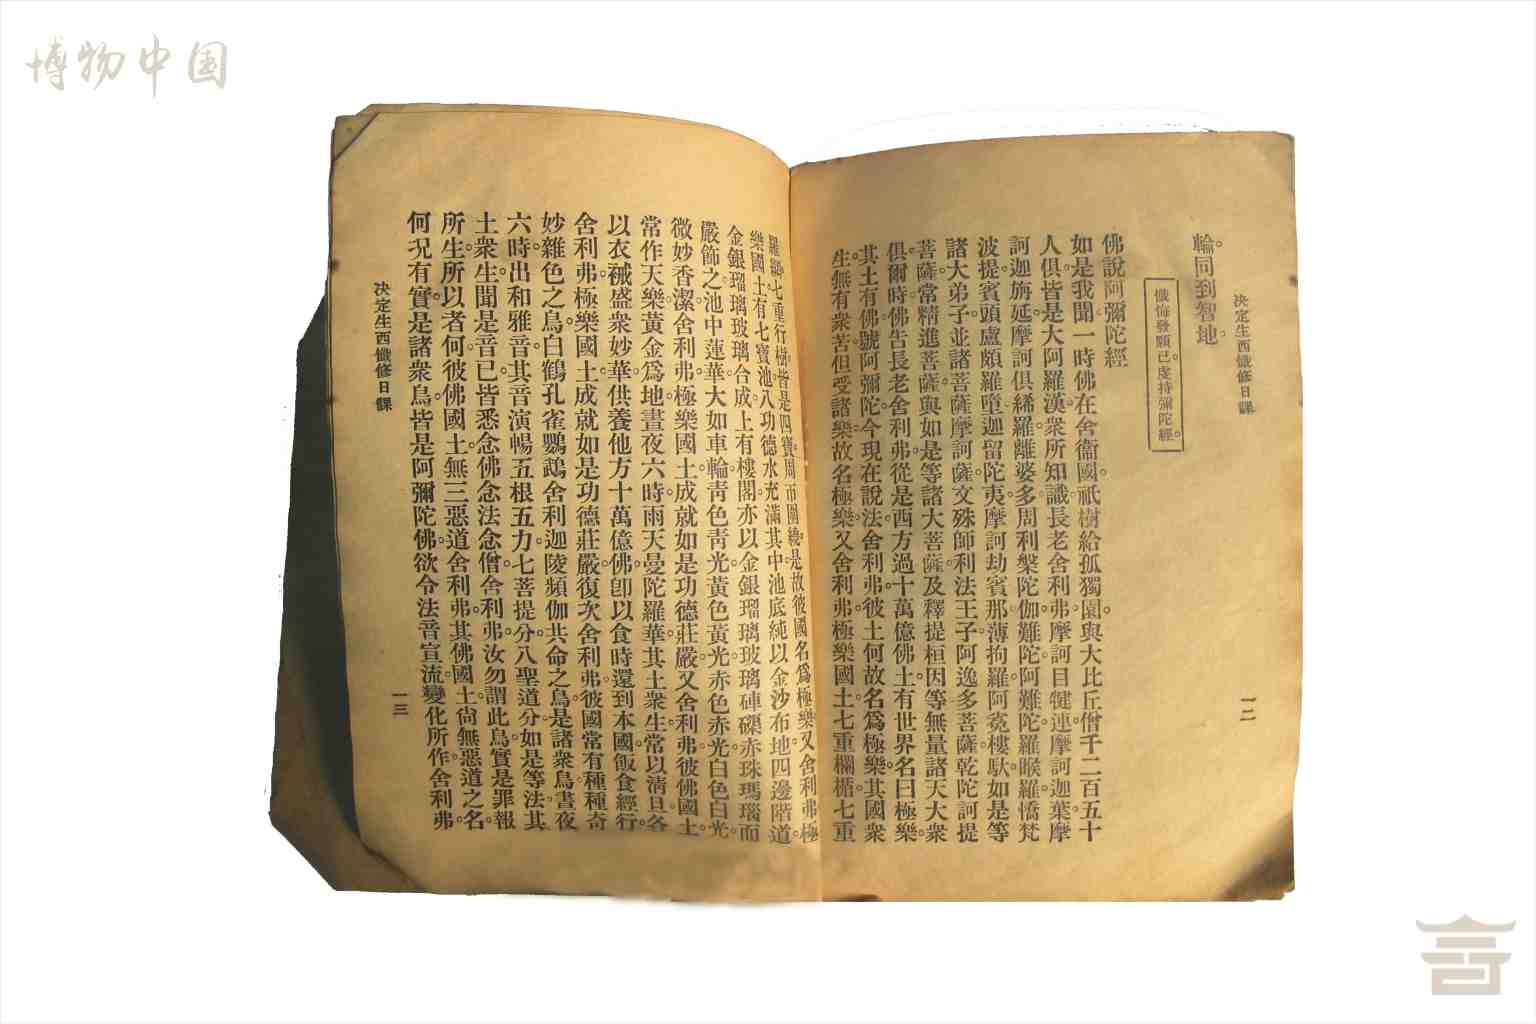 博物中国
决定生西懺修日課
一二
輪同到智地。
懺悔發願已。虔持彌陀經。
佛說阿彌陀經
如是我聞一時佛在舍衞國。祇樹給孤獨園。與大比丘僧千二百五十
人俱皆是大阿羅漢。衆所知識。長老舍利弗。摩訶目犍連。摩訶迦葉。摩
訶迦旃延。摩訶俱絺羅。離婆多。周利槃陀伽。難陀。阿難陀。羅睺羅。憍梵
波提。賓頭盧頗羅墮。迦留陀夷。摩訶劫賓那。薄拘羅。阿㝹樓馱。如是等
諸大弟子。並諸菩薩摩訶薩。文殊師利法王子。阿逸多菩薩。乾陀訶提
菩薩。常精進菩薩。與如是等諸大菩薩。及釋提桓因等無量諸天大衆
俱。爾時佛告長老舍利弗。從是西方過十萬億佛土。有世界名曰極樂。
其土有佛號阿彌陀。今現在說法。舍利弗。彼土何故名爲極樂。其國衆
生無有衆苦。但受諸樂。故名極樂。又舍利弗。極樂國土。七重欄楯。七重
羅網。七重行樹。皆是四寶周帀圍繞。是故彼國名爲極樂。又舍利弗。極
樂國土有七寶池。八功德水充滿其中。池底純以金沙布地。四邊階道。
金銀瑠璃玻瓈合成。上有樓閣。亦以金銀瑠璃玻瓈硨磲赤珠瑪瑙而
嚴飾之。池中蓮華大如車輪。靑色靑光。黃色黃光。赤色赤光。白色白光。
微妙香潔。舍利弗。極樂國土成就如是功德莊嚴。又舍利弗。彼佛國土。
常作天樂。黃金爲地。晝夜六時。雨天曼陀羅華。其土衆生。常以淸旦。各
以衣裓盛衆妙華。供養他方十萬億佛。卽以食時還到本國。飯食經行。
舍利弗。極樂國土成就如是功德莊嚴。復次舍利弗。彼國常有種種奇
妙雜色之鳥。白鶴孔雀鸚鵡舍利迦陵頻伽共命之鳥。是諸衆鳥。晝夜
六時。出和雅音。其音演暢五根五力七菩提分八聖道分如是等法。其
土衆生。聞是音已。皆悉念佛念法念僧。舍利弗。汝勿謂此鳥實是罪報
所生。所以者何。彼佛國土。無三惡道。舍利弗。其佛國土尙無惡道之名。
何況有實。是諸衆鳥。皆是阿彌陀佛。欲令法音宣流。變化所作。舍利弗。
决定生西懺修日課
一三